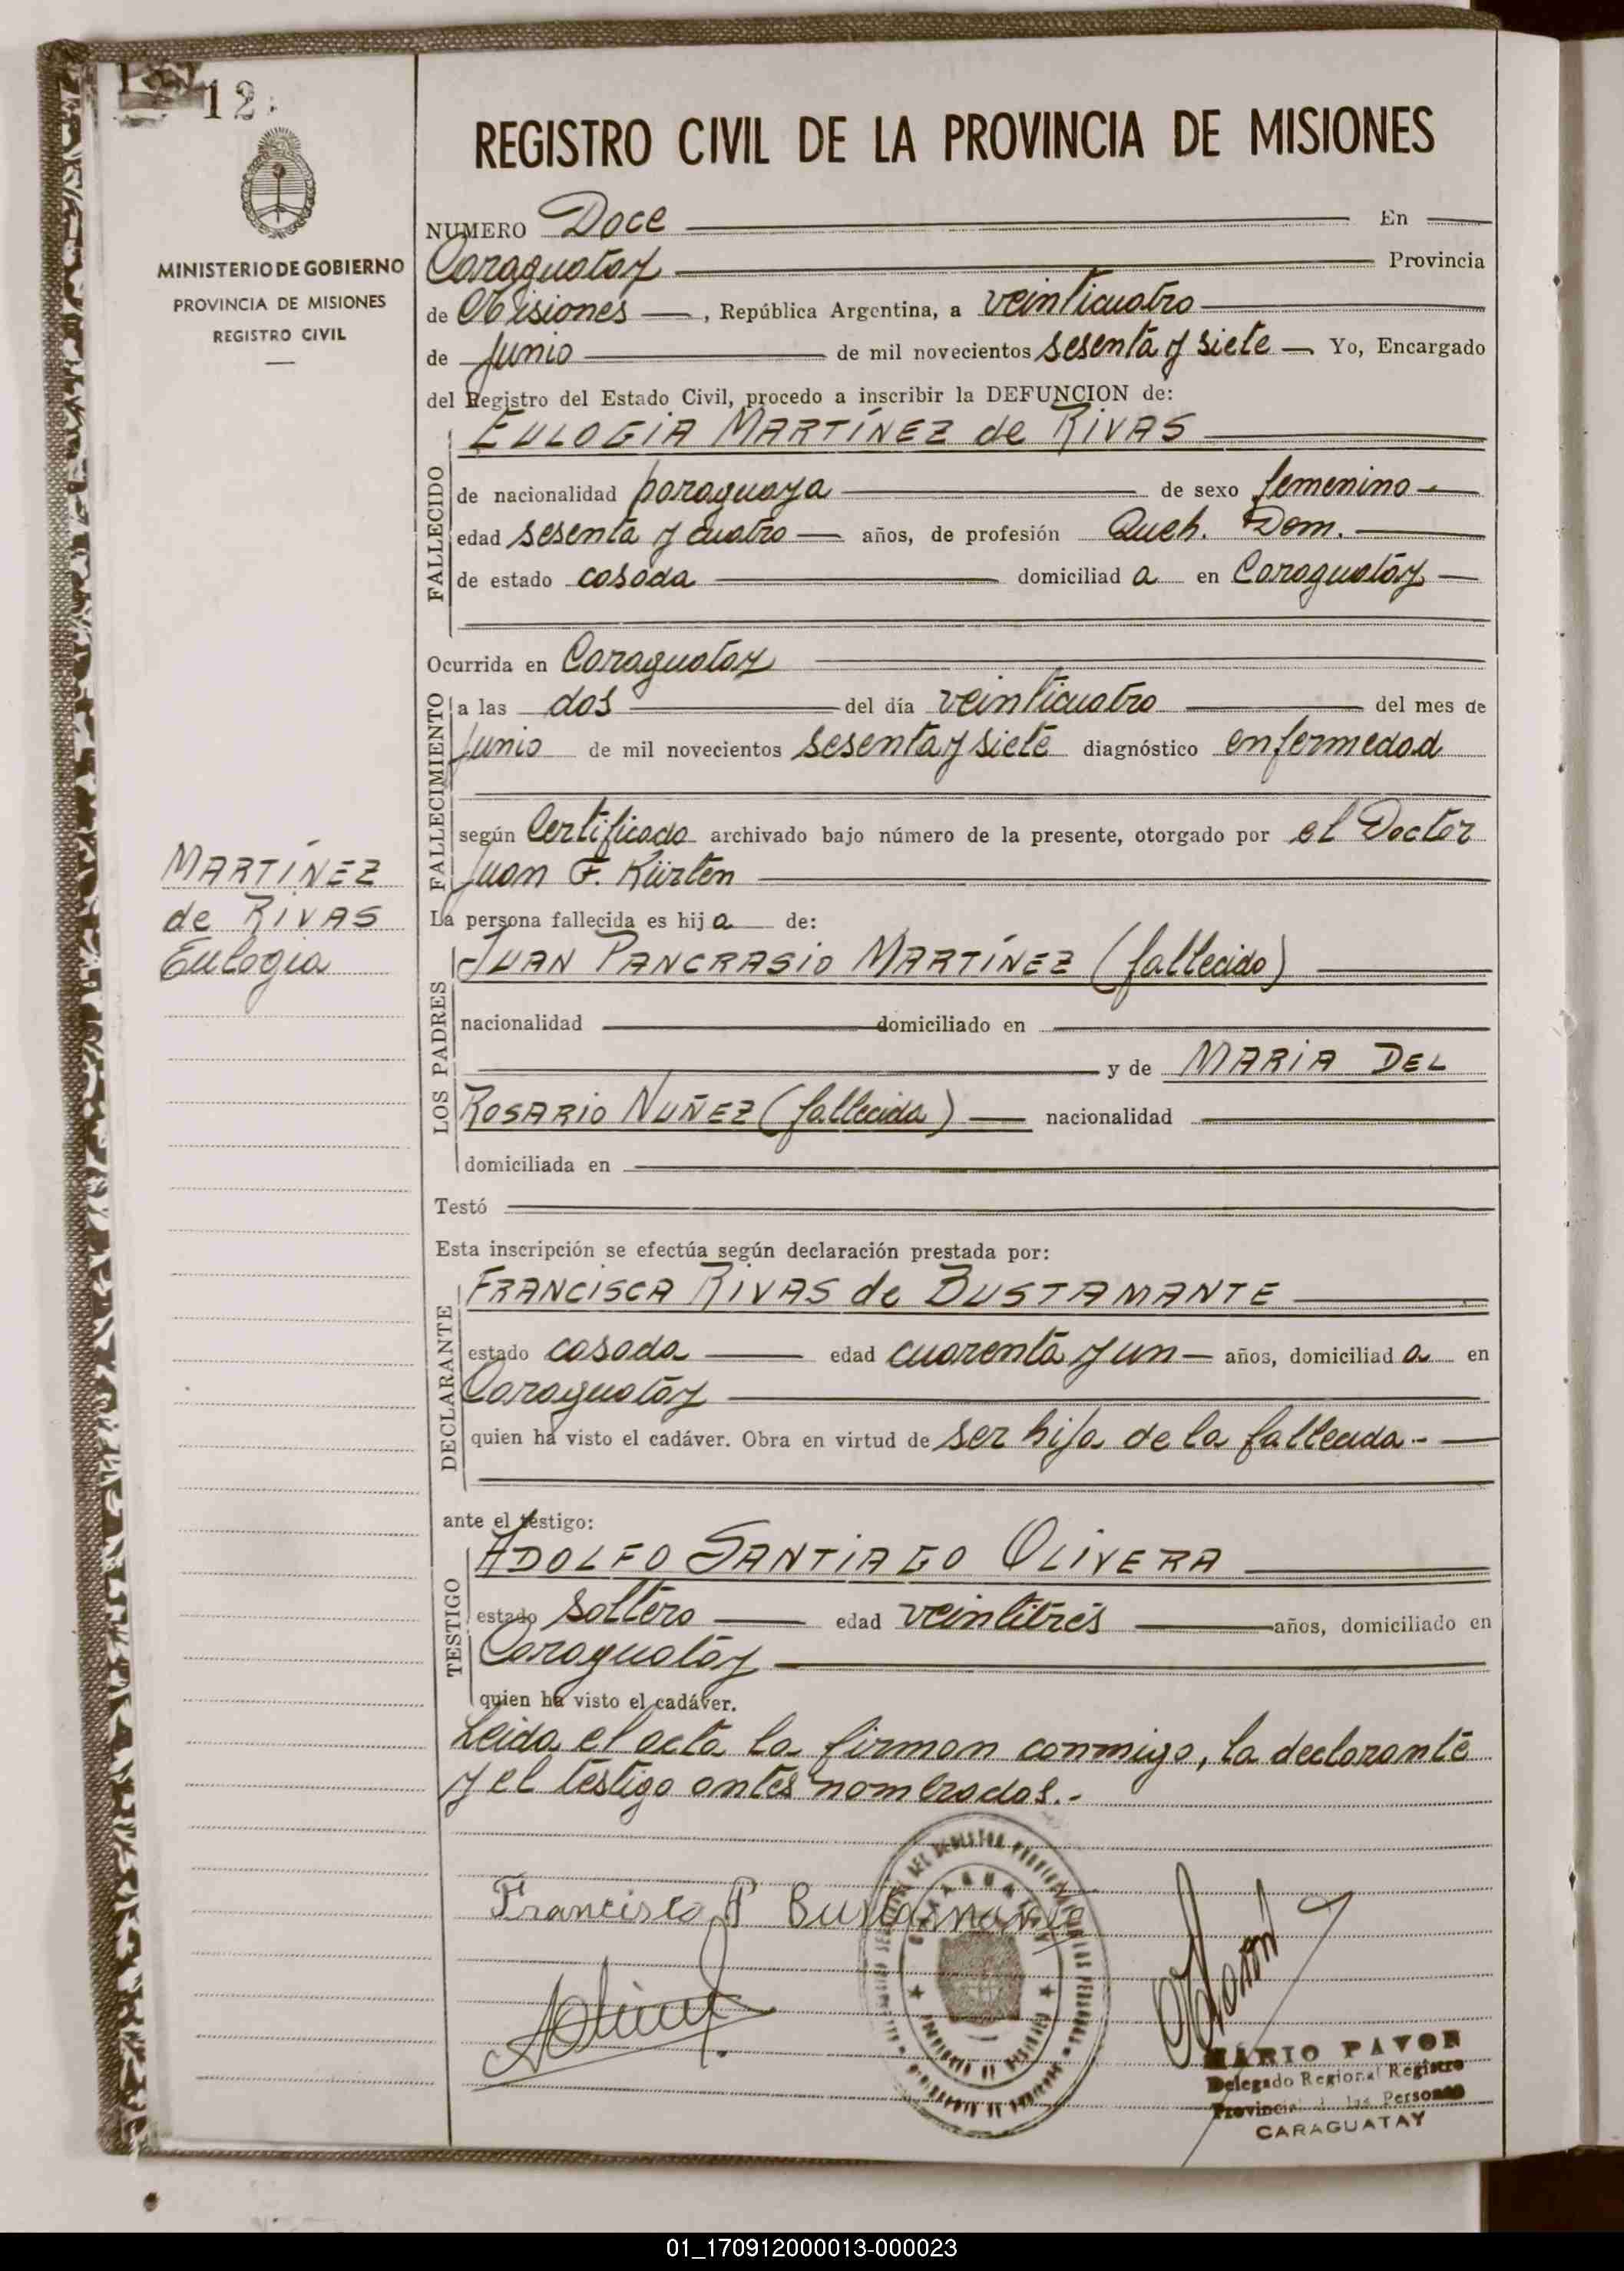 12
MINISTERIO DE GOBIERNO
PROVINCIA DE MISIONES
REGISTRO CIVIL
MARTÍNEZ
de RIVAS
Eulogia
REGISTRO CIVIL DE LA PROVINCIA DE MISIONES
NUMERO Doce En
Caraguatay Provincia
de Misiones, República Argentina, a veinticuatro
de Junio de mil novecientos sesenta y siete Yo, Encargado
del Registro del Estado Civil, procedo a inscribir la DEFUNCION de:
FALLECIDO
EULOGIA MARTÍNEZ de RIVAS
de nacionalidad paraguaya de sexo femenino
edad sesenta y cuatro años, de profesión Queh. Dom.
de estado casada domiciliad a en Caraguatay
Ocurrida en Caraguatay
FALLECIMIENTO
a las dos del día veinticuatro del mes de
Junio de mil novecientos sesenta y siete diagnóstico enfermedad
según Certificado archivado bajo número de la presente, otorgado por el Doctor
Juan F. Kürten
La persona fallecida es hij a de:
LOS PADRES
JUAN PANCRASIO MARTÍNEZ (fallecido)
nacionalidad domiciliado en
y de MARIA DEL
ROSARIO NUÑEZ (fallecida) nacionalidad
domiciliada en
Testó
Esta inscripción se efectúa según declaración prestada por:
DECLARANTE
FRANCISCA RIVAS de BUSTAMANTE
estado casada edad cuarenta y un años, domiciliad a en
Caraguatay
quien ha visto el cadáver. Obra en virtud de ser hija de la fallecida.-
ante el testigo:
TESTIGO
ADOLFO SANTIAGO OLIVERA
estado soltero edad veintitrés años, domiciliado en
Caraguatay
quien ha visto el cadáver.
Leida el acta la firman conmigo, la declarante
y el testigo antes nombrados.-
Francisca P Bustamante
MARIO PAVON
Delegado Regional Registro
Provincial las Personas
CARAGUATAY
01_170912000013-000023